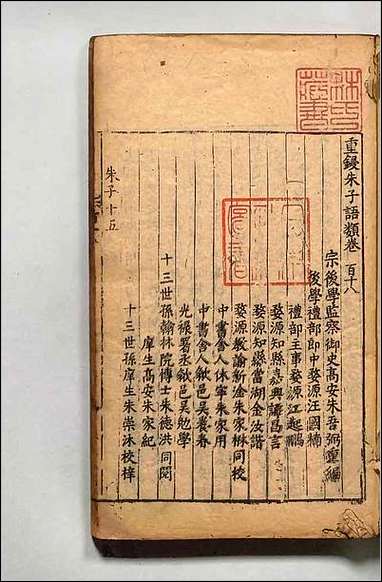 重鋟朱子語類卷百十八
宗後學監察御史高安朱吾弼重編
後學禮部郎中婺源汪國楠
禮部主事婺源江起鵬
婺源知縣嘉興譚昌言
婺源知縣當湖金汝諧
婺源教諭新淦朱家楙同校
中書舍人休寧朱家用
中書舍人歙邑吳養春
光祿署丞歙邑吳勉學
十三世孫翰林院博士朱德洪同閱
庠生高安朱家紀
十三世孫庠生朱崇沐校梓
朱子十五